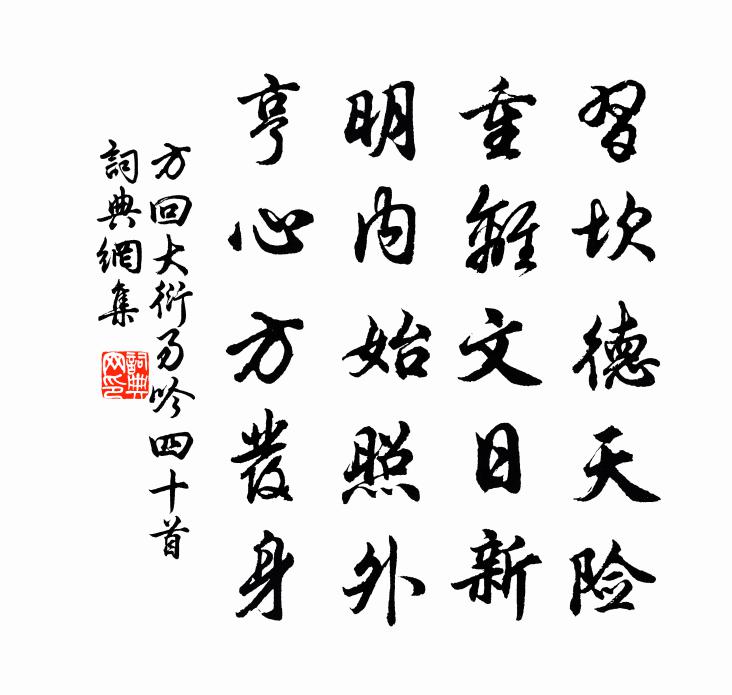 習坎德天险
重離文日新
明内始照外
亨心方發身
方回大衍易吟四十首
詞典網集
詞典網印